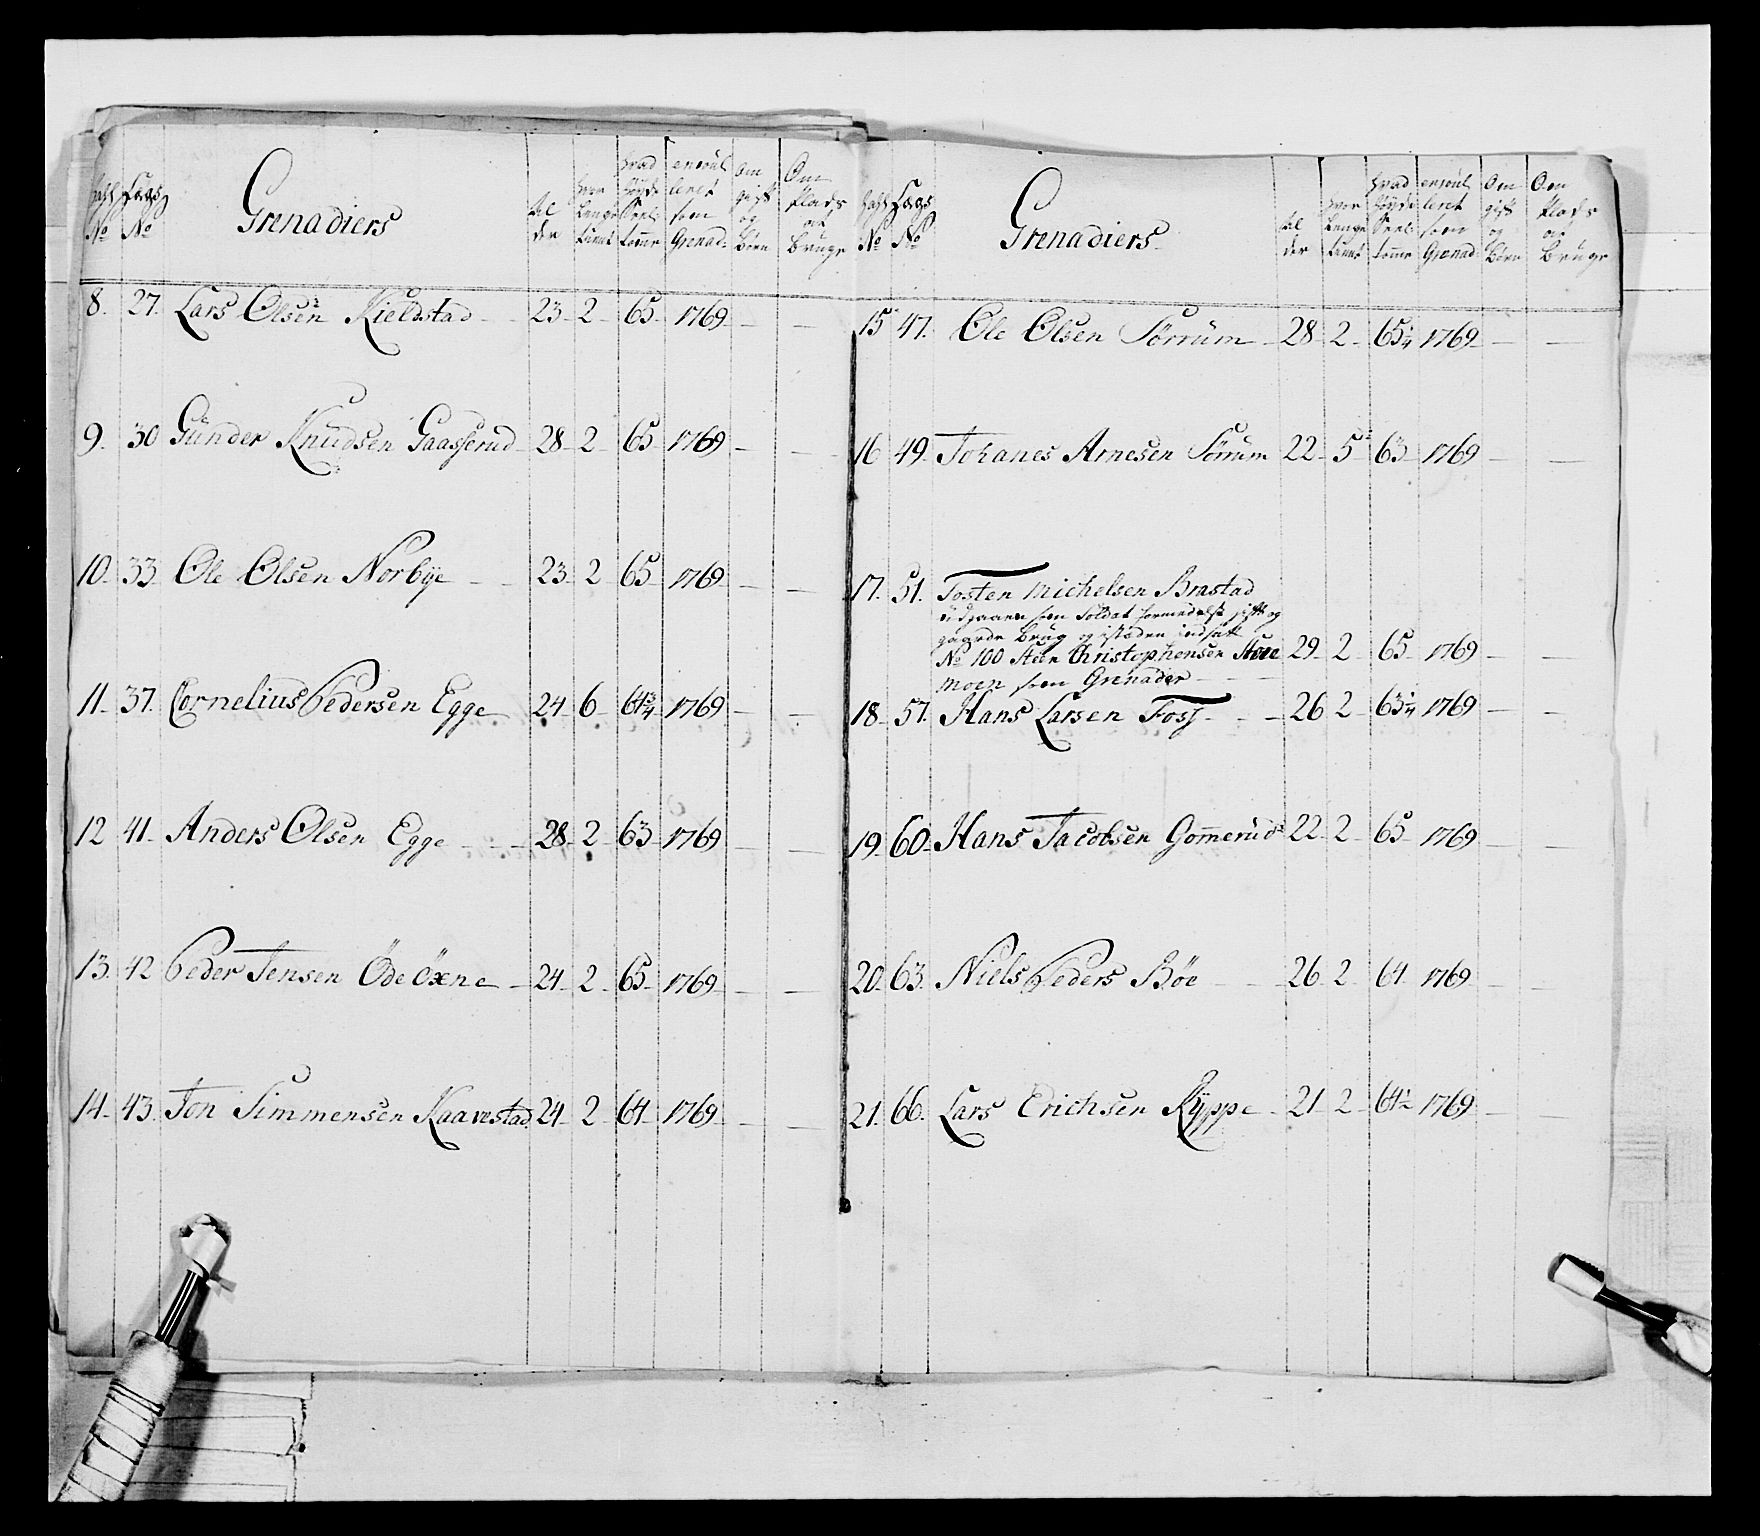 Lægs No
Grenadiers
hvad høyde
enroul leret som Grenad:
Om gift og Børn
Om Plads at Bruge
8. 27. Lars Olsen Kieldstad 23 2 65 1769
9. 30 Gunder Knudsen Gaasserud 28 2 65 1769
10. 33. Ole Olsen Norbÿe 23 2 65 1769
11. 37. Cornelius Pedersen Egge 24 6 64¾ 1769
12 41. Anders Olsen Egge 28 2 63 1769
13. 42 Peder Jensen Ödeöxne 24 2 65 1769
14. 43. Jon Simmensen Kaavestad 24 2 64 1769
Lægs No
Grenadiers
hvad høyde
enroul leret som Grenad:
Om gift og Børn
Om Plads at Bruge
15 47. Ole Olsen Sørrum 28 2 65¼ 1769
16 49. Johanes Arnesen Sørrum 22 5 63 1769
17. 51. Tosten Michelsen Brastad
udgaaen som Soldat formedelst gift og
gaarde Brug og isteden indsatt
No 100 Steen Christophensen Store 29 2 65 1769
moen som Grenader
18. 57. Hans Larsen Foss 26 2 63¼ 1769
19. 60. Hans Jacobsen Gom̄erud 22 2 65 1769
20. 63. Niels Peders Bøe 26 2 64 1769
21. 66. Lars Erichsen Rÿppe 21 2 64½ 1769